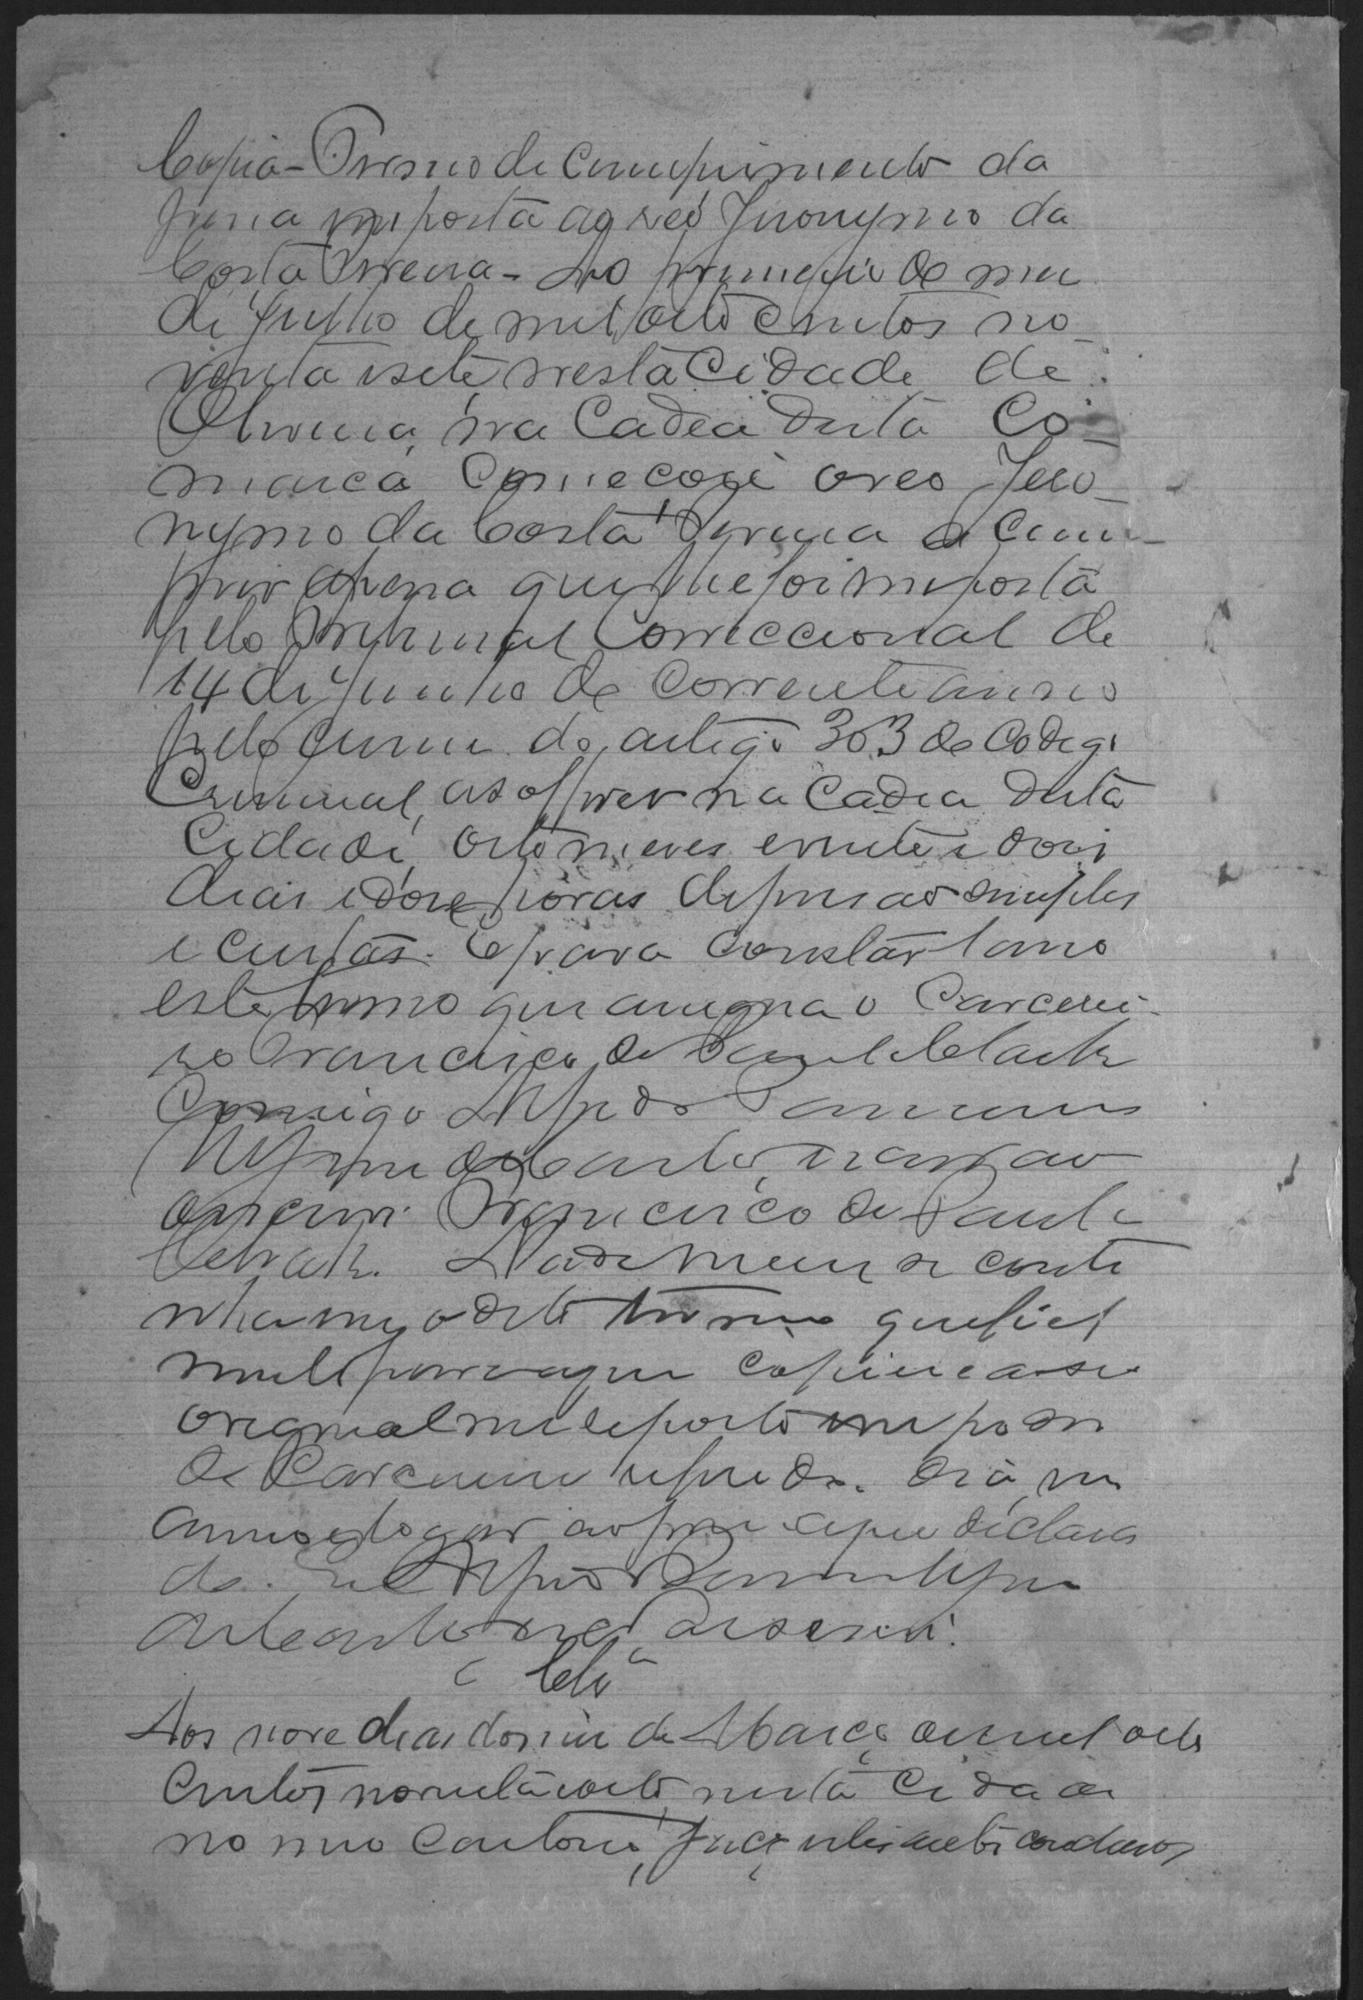 Copia - Termo de Cumprimento da
pena imposta ao reo Jeronymo da
Costa Pereira - Ao primeiro do mez
de Julho de mil oito centos no-
venta e sete, nesta Cidade de
Oliveira, na Cadea desta Co-
marca Começou o reo Jero-
nymo da Costa Pereira a cum-
prir a pena que lhe foi imposta
pelo Tribunal Correccional de
14 de Junho do corrente anno
pelo crime do artigo 303 do Codigo
Criminal, a soffrer na Cadea desta
Cidade, oito meses e vinte e dois
dias e doze horas de prisão simples
e custas. E para constar lavro
este termo que assigna o Carcerei-
ro Francisco de Paula
Comigo Alfredo
escrivão
o escrevi. Francisco de Paula
Nada mais se conti
nha em o dito termo que fiel
mente para aqui copiei e a seu
original me reporto em poder
do Carcereiro referido. Dia, mez
anno e logar ao principio declara
do. Eu Alfredo
escrevi.
Clz
Aos nove dias do mez de Março de mil oito
Centos noventa e oito, nesta Cidade
no meu Cartorio, faço estes autos conclusos